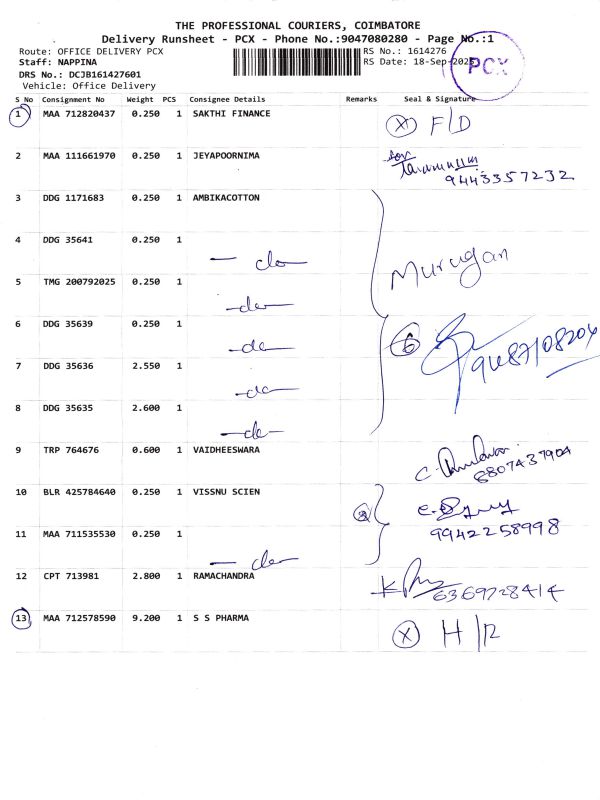 THE PROFESSIONAL COURIERS, COIMBATORE
Delivery Runsheet - PCX - Phone No.:9047080280 - Page No.:1
Route: OFFICE DELIVERY PCX RS No.: 1614276
Staff: NAPPINA RS Date: 18-Sep-2025 PCX
DRS No.: DCJB161427601
Vehicle: Office Delivery
S No Consignment No Weight PCS Consignee Details Remarks Seal & Signature
1 MAA 712820437 0.250 1 SAKTHI FINANCE X F/D
2 MAA 111661970 0.250 1 JEYAPOORNIMA
9443357232
3 DDG 1171683 0.250 1 AMBIKACOTTON
4 DDG 35641 0.250 1 - do - Murugan
5 TMG 200792025 0.250 1 - do -
6 DDG 35639 0.250 1 - do - 6
7 DDG 35636 2.550 1 - do -
8 DDG 35635 2.600 1 - do -
9 TRP 764676 0.600 1 VAIDHEESWARA
6807437904
10 BLR 425784640 0.250 1 VISSNU SCIEN 2
11 MAA 711535530 0.250 1 - do - 9942258998
12 CPT 713981 2.800 1 RAMACHANDRA 6369728414
13 MAA 712578590 9.200 1 S S PHARMA X H/R